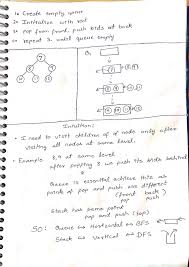 1. Create empty queue
2. Initiation with root
3. pop from front, push kids at back
4. repeat 3. until queue empty
Q.
Intuition:
• I need to visit children of a node only after
visiting all nodes at same level.
• Example 8,9 at same level
after popping 8 we push its kids behind
9
Queue is essential achieve this as
point of pop and push are different
(front back)
pop push
Stack has same point
pop and push (top)
SO: Queue ↔ Horizontal ↔ BFS
Stack ↔ Vertical ↔ DFS